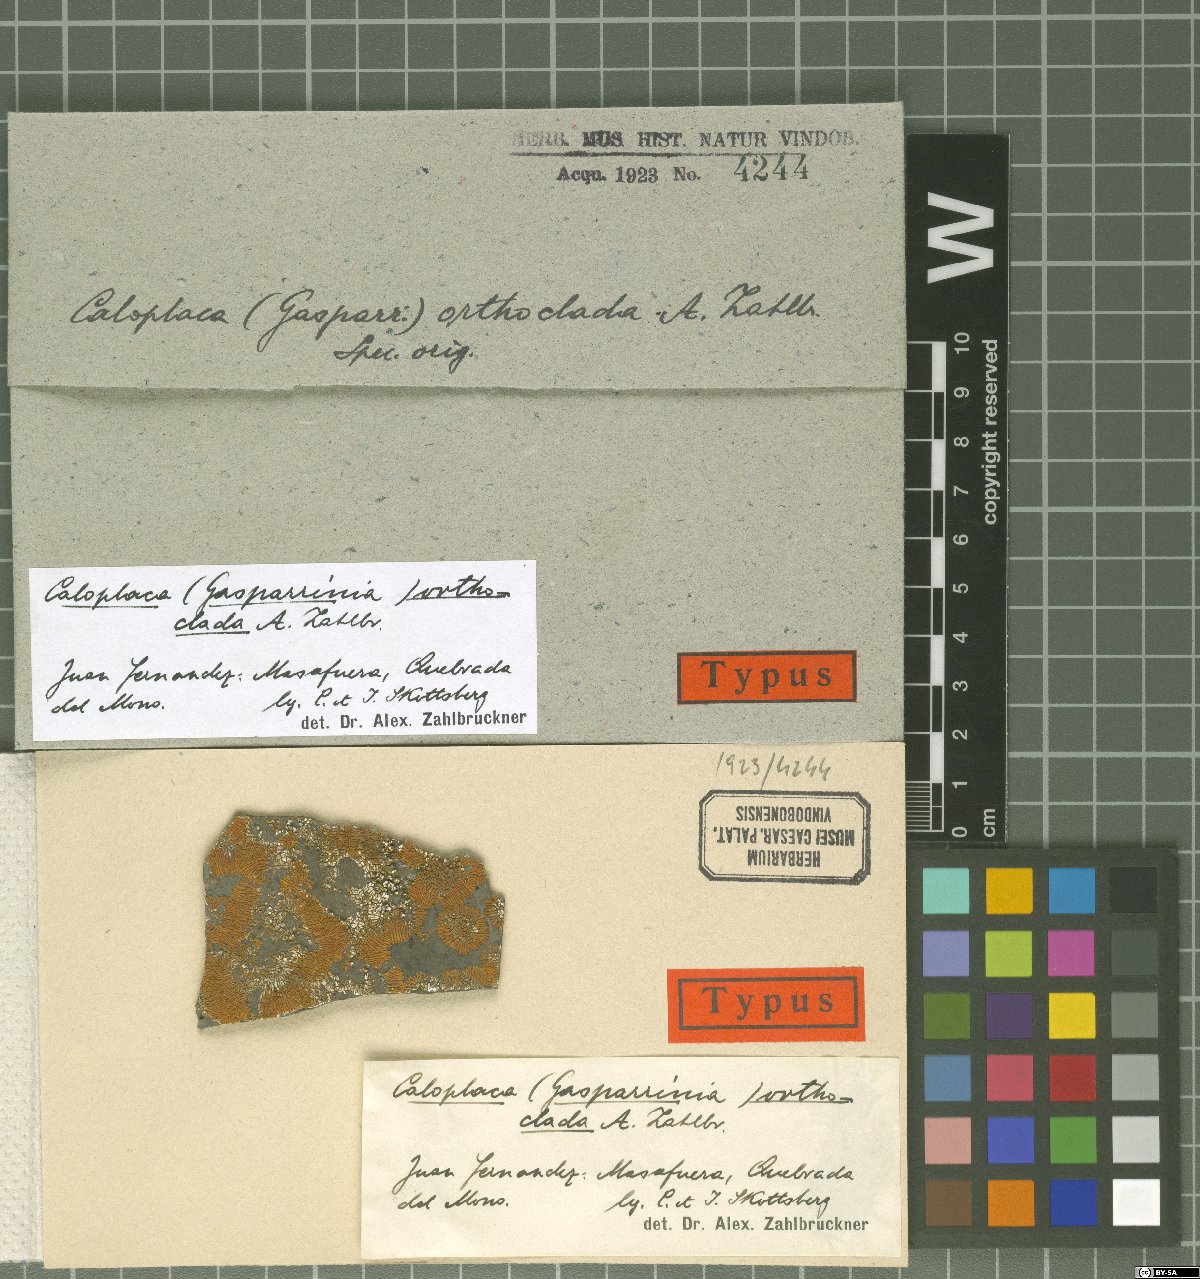 HERB. MUS HIST. NATUR VINDOB.
Acqu. 1923 No. 4244
Caloplaca (Gasparr.) orthoclada A. Zahlbr.
Spec. orig.
Caloplaca (Gasparrinia) ortho-
clada A. Zahlbr.
Juan Fernandez: Masafuera, Quebrada
del Mono. lg. C. et I. Skottsberg
det. Dr. Alex. Zahlbruckner
Typus
W
10
9
8
7
6
5
4
3
2
1
0
cm
copyright reserved
1923/4244
HERBARIUM
MUSEI CAESAR. PALAT.
VINDOBONENSIS
Typus
Caloplaca (Gasparrinia) ortho-
clada A. Zahlbr.
Juan Fernandez: Masafuera, Quebrada
del Mono. lg. C. et I. Skottsberg
det. Dr. Alex. Zahlbruckner
cc BY-SA